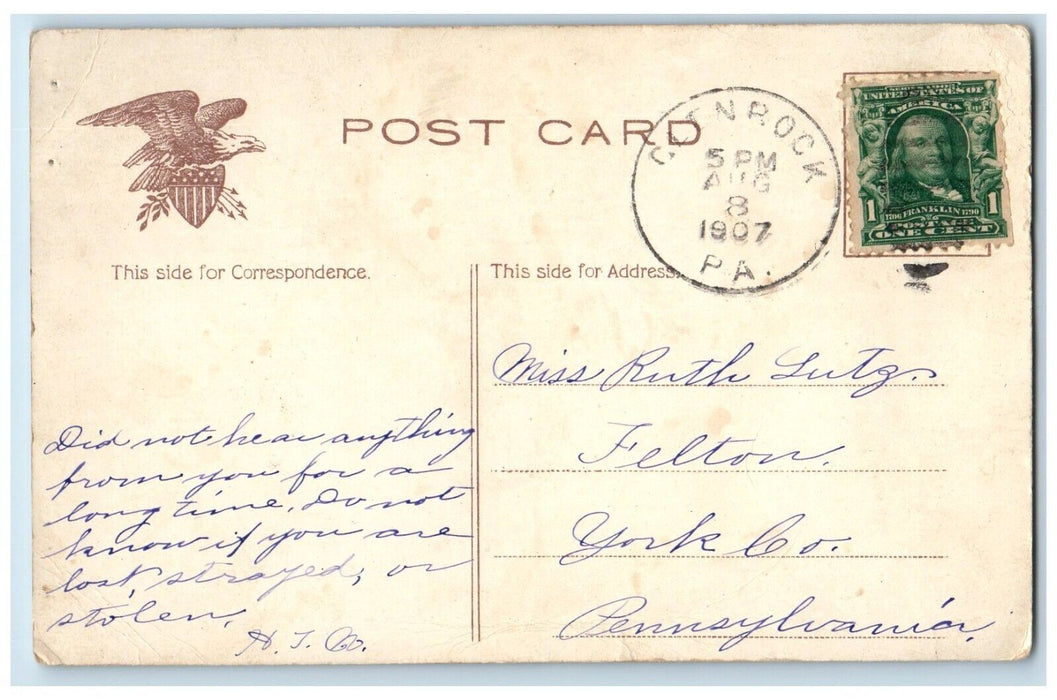 POST CARD
GLENROCK
5 PM
AUG
8
1907
PA.
SERIES 1902
UNITED STATES OF
AMERICA
1706 FRANKLIN 1790
1 1
POSTAGE
ONE CENT
This side for Correspondence.
This side for Address.
Did not hear anything
from you for a
long time. Do not
know if you are
lost, strayed, or
stolen.
Miss Ruth Lutz.
Felton.
York Co.
Pennsylvania.